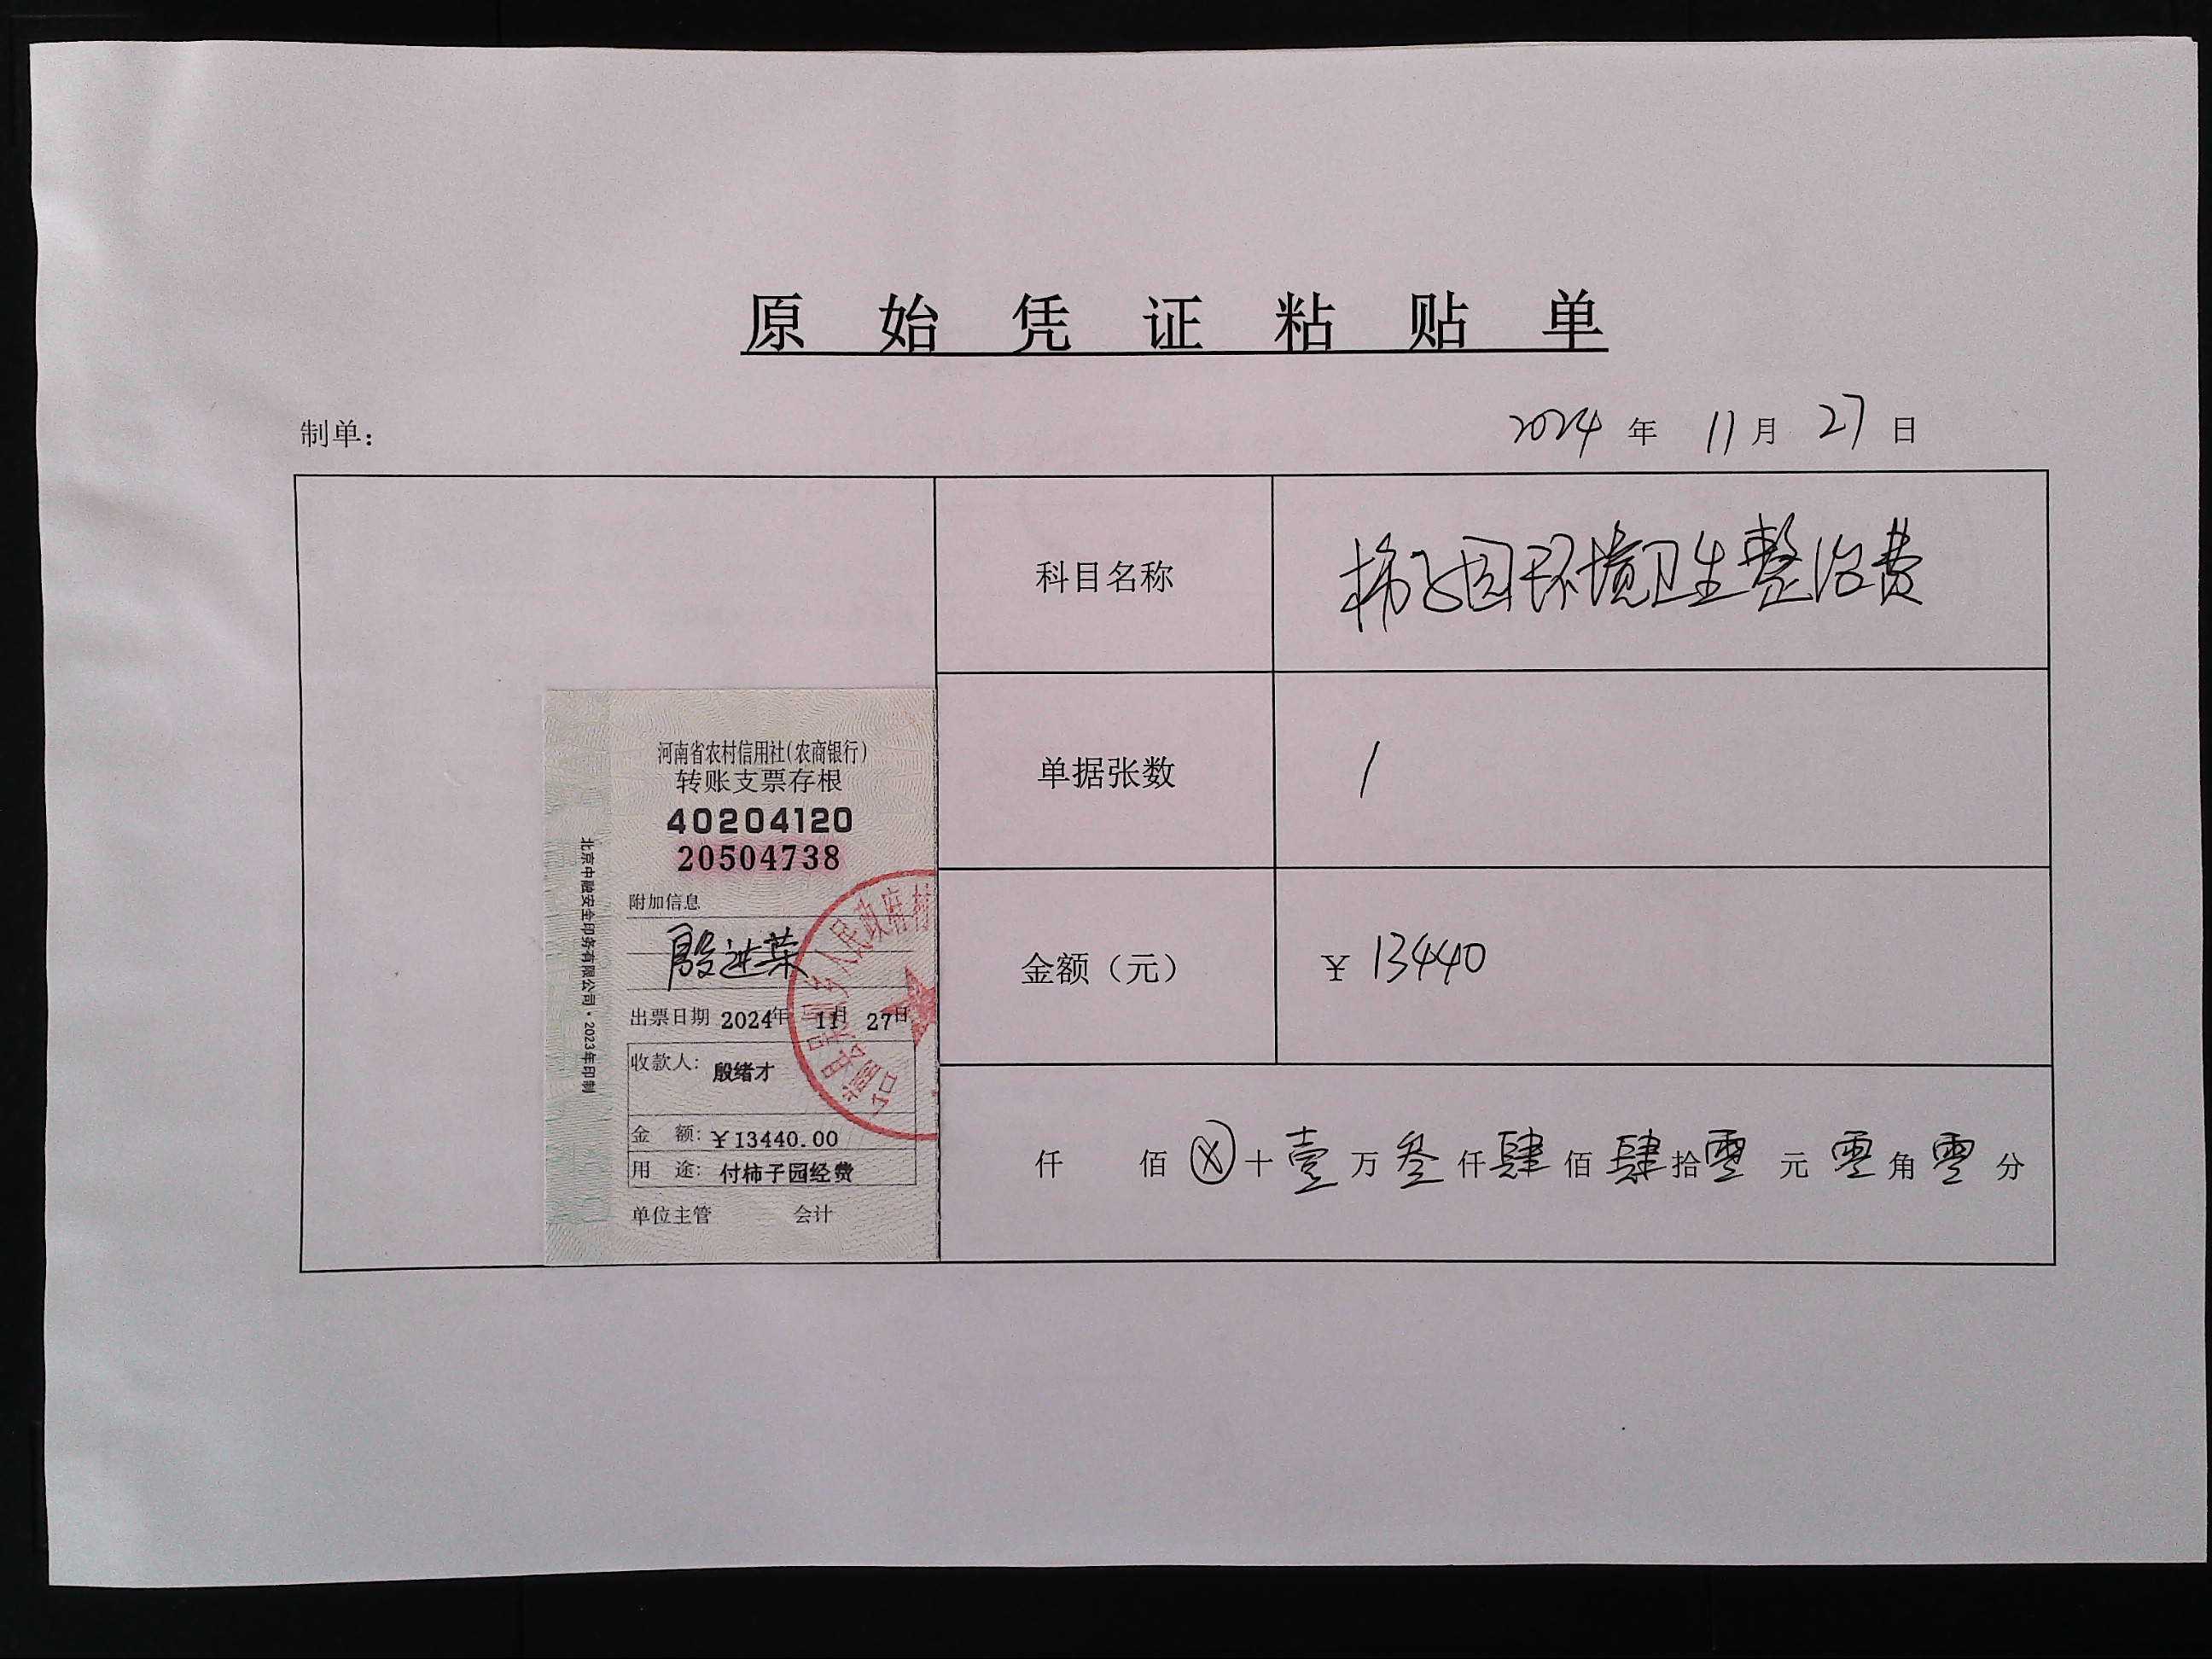 原始凭证粘贴单
制单：
2024 年 11 月 27 日
科目名称
柿子园环境卫生整治费
单据张数
1
金额（元）
￥ 13440
仟 佰 ⊗ 十 壹 万 叁 仟 肆 佰 肆 拾 零 元 零 角 零 分
河南省农村信用社(农商银行)
转账支票存根
40204120
20504738
附加信息
殷进荣
出票日期 2024年 11月 27日
收款人: 殷绪才
金 额: ￥13440.00
用 途: 付柿子园经费
单位主管 会计
北京中融安全印务有限公司·2023年印制
乡人民政府村